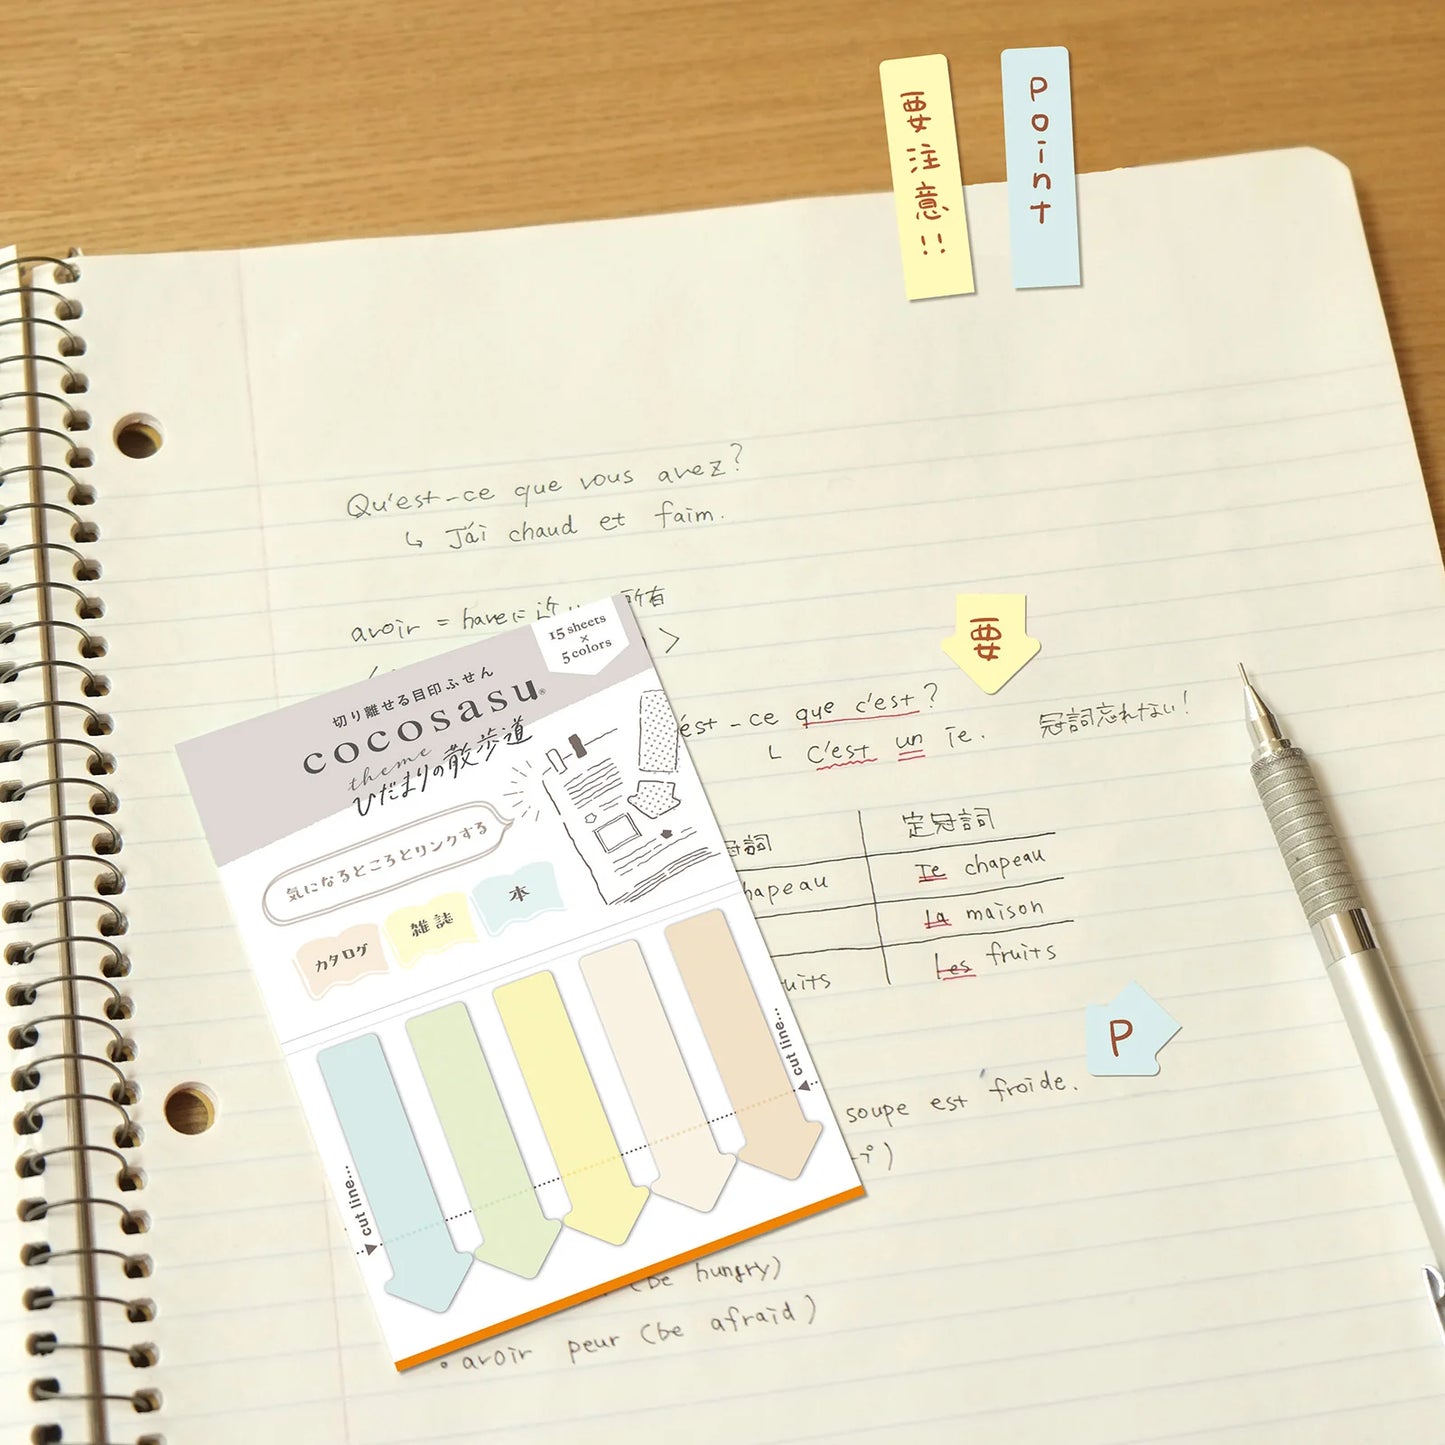 要注意!!
Point
Qu'est-ce que vous avez?
↳ J'ai chaud et faim.
avoir = haveに近い 所有
要
est-ce que c'est?
└ C'est un Ie. 冠詞忘れない!
冠詞 定冠詞
chapeau Ie chapeau
La maison
fruits Les fruits
P
soupe est froide.
(be hungry)
• avoir peur (be afraid)
15 sheets
×
5 colors
切り離せる目印ふせん
cocosasu®
theme
ひだまりの散歩道
気になるところとリンクする
カタログ
雑誌
本
cut line...
cut line...